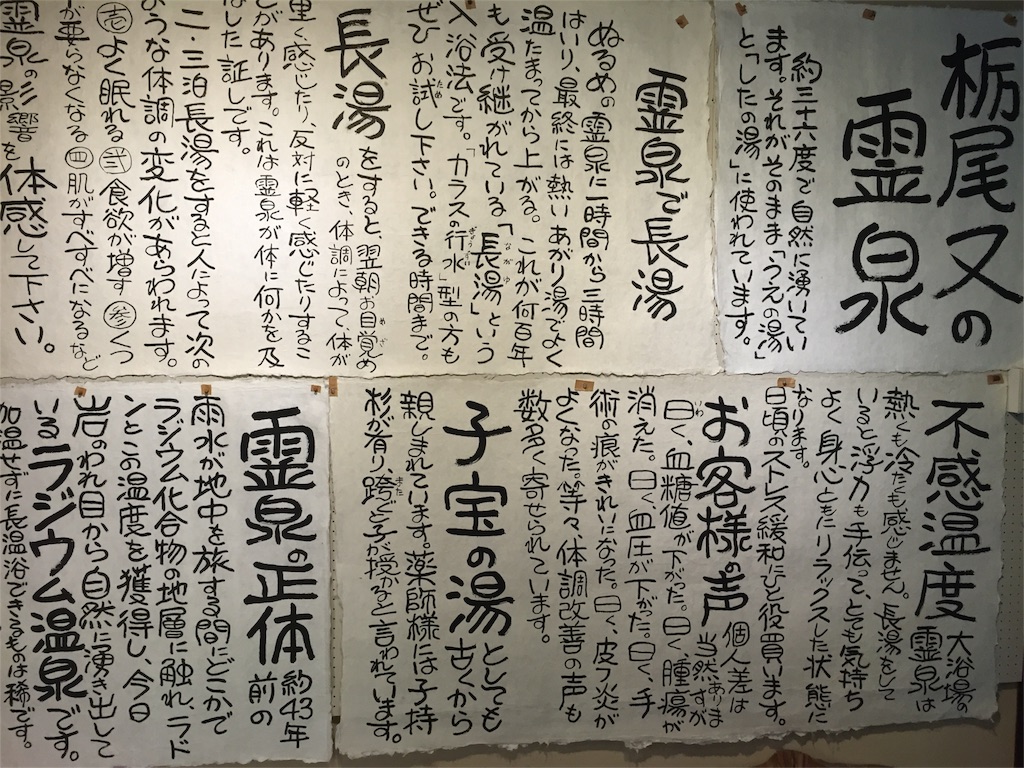 栃尾又の
霊泉
約三十六度で自然に湧いてい
ます。それがそのまま「うえの湯」
と「したの湯」に使われています。
霊泉で長湯
ぬるめの霊泉に一時間から三時間
はいり、最終には熱いあがり湯でよく
温たまってから上がる。これが何百年
も受け継がれている「長湯」という
ながゆ
入浴法です。「カラスの行水」型の方も
ぎょうずい
ぜひお試し下さい。できる時間まで。
ため
長湯をすると、翌朝お目覚め
めざ
のとき、体調によって、体が
重く感じたり、反対に軽く感じたりするこ
とがあります。これは霊泉が体に何かを及
ぼした証しです。
二・三泊長湯をすると人によって次の
ような体調の変化があらわれます。
壱よく眠れる 弐食欲が増す 参くつ
が要らなくなる 四肌がすべすべになるなど
霊泉の影響を体感して下さい。
不感温度 大浴場の
霊泉は
熱くも冷たくも感じません。長湯をして
いると浮力も手伝って、とても気持ち
よく身心ともにリラックスした状態に
なります。
日頃のストレス緩和にひと役買います。
お客様の声 個人差は
当然ありま
すが
曰く、血糖値が下がった。曰く、腫瘍が
いわ
消えた。曰く、血圧が下がった。曰く、手
術の痕がきれいになった。曰く、皮フ炎が
よくなった。等々、体調改善の声も
数多く寄せられています。
子宝の湯としても
古くから
親しまれています。薬師様には子持
杉が有り、跨ぐと子が授かると言われています。
また
霊泉の正体 約43年
前の
雨水が地中を旅する間にどこかで
ラジウム化合物の地層に触れ、ラド
ンとこの温度を獲得し、今日
岩のわれ目から自然に湧き出して
いるラジウム温泉です。
加温せずに長温浴できるものは稀です。